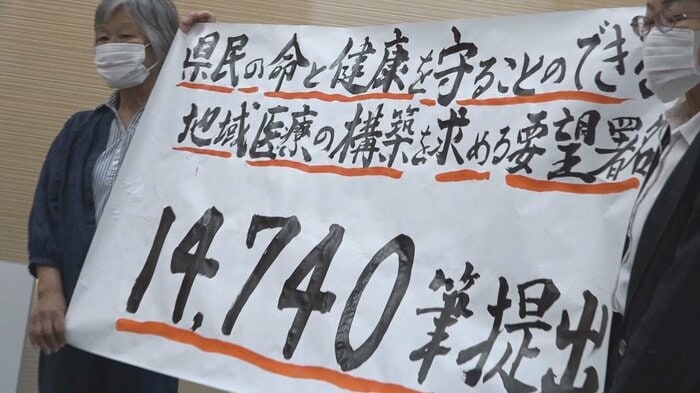 県民の命と健康を守ることのできる
地域医療の構築を求める要望署名
14,740筆提出